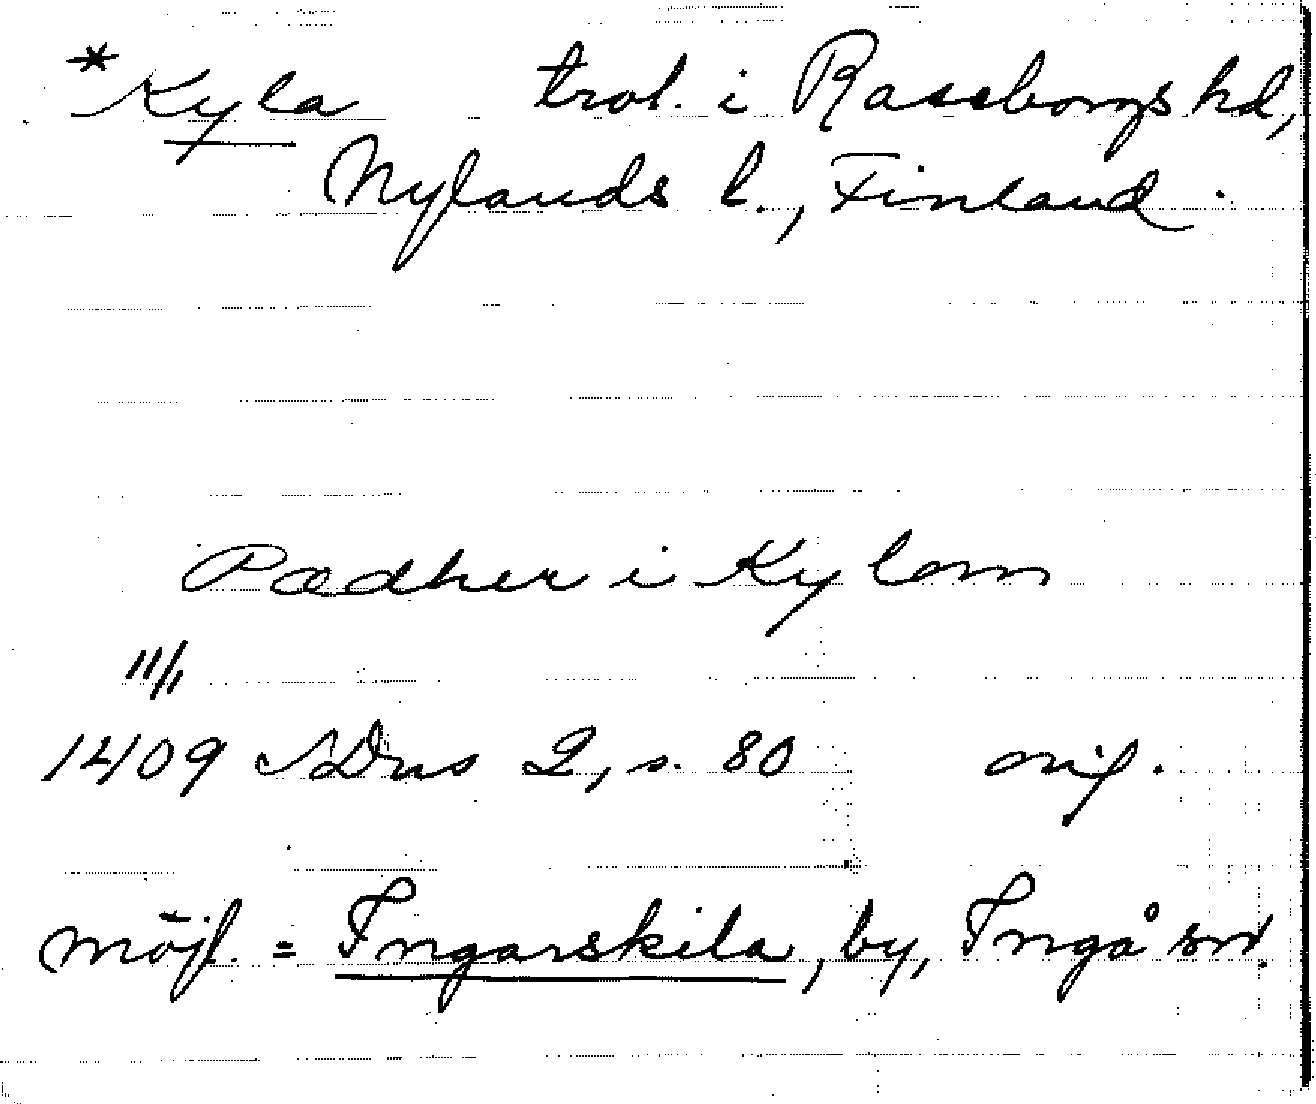 *Kyla trol. i Raseborgs hd,
Nylands l., Finland.
Pædher i Kylom
11/1
1409 SDns 2, s. 80 orig.
möjl. = Ingarskila, by, Ingå sn.